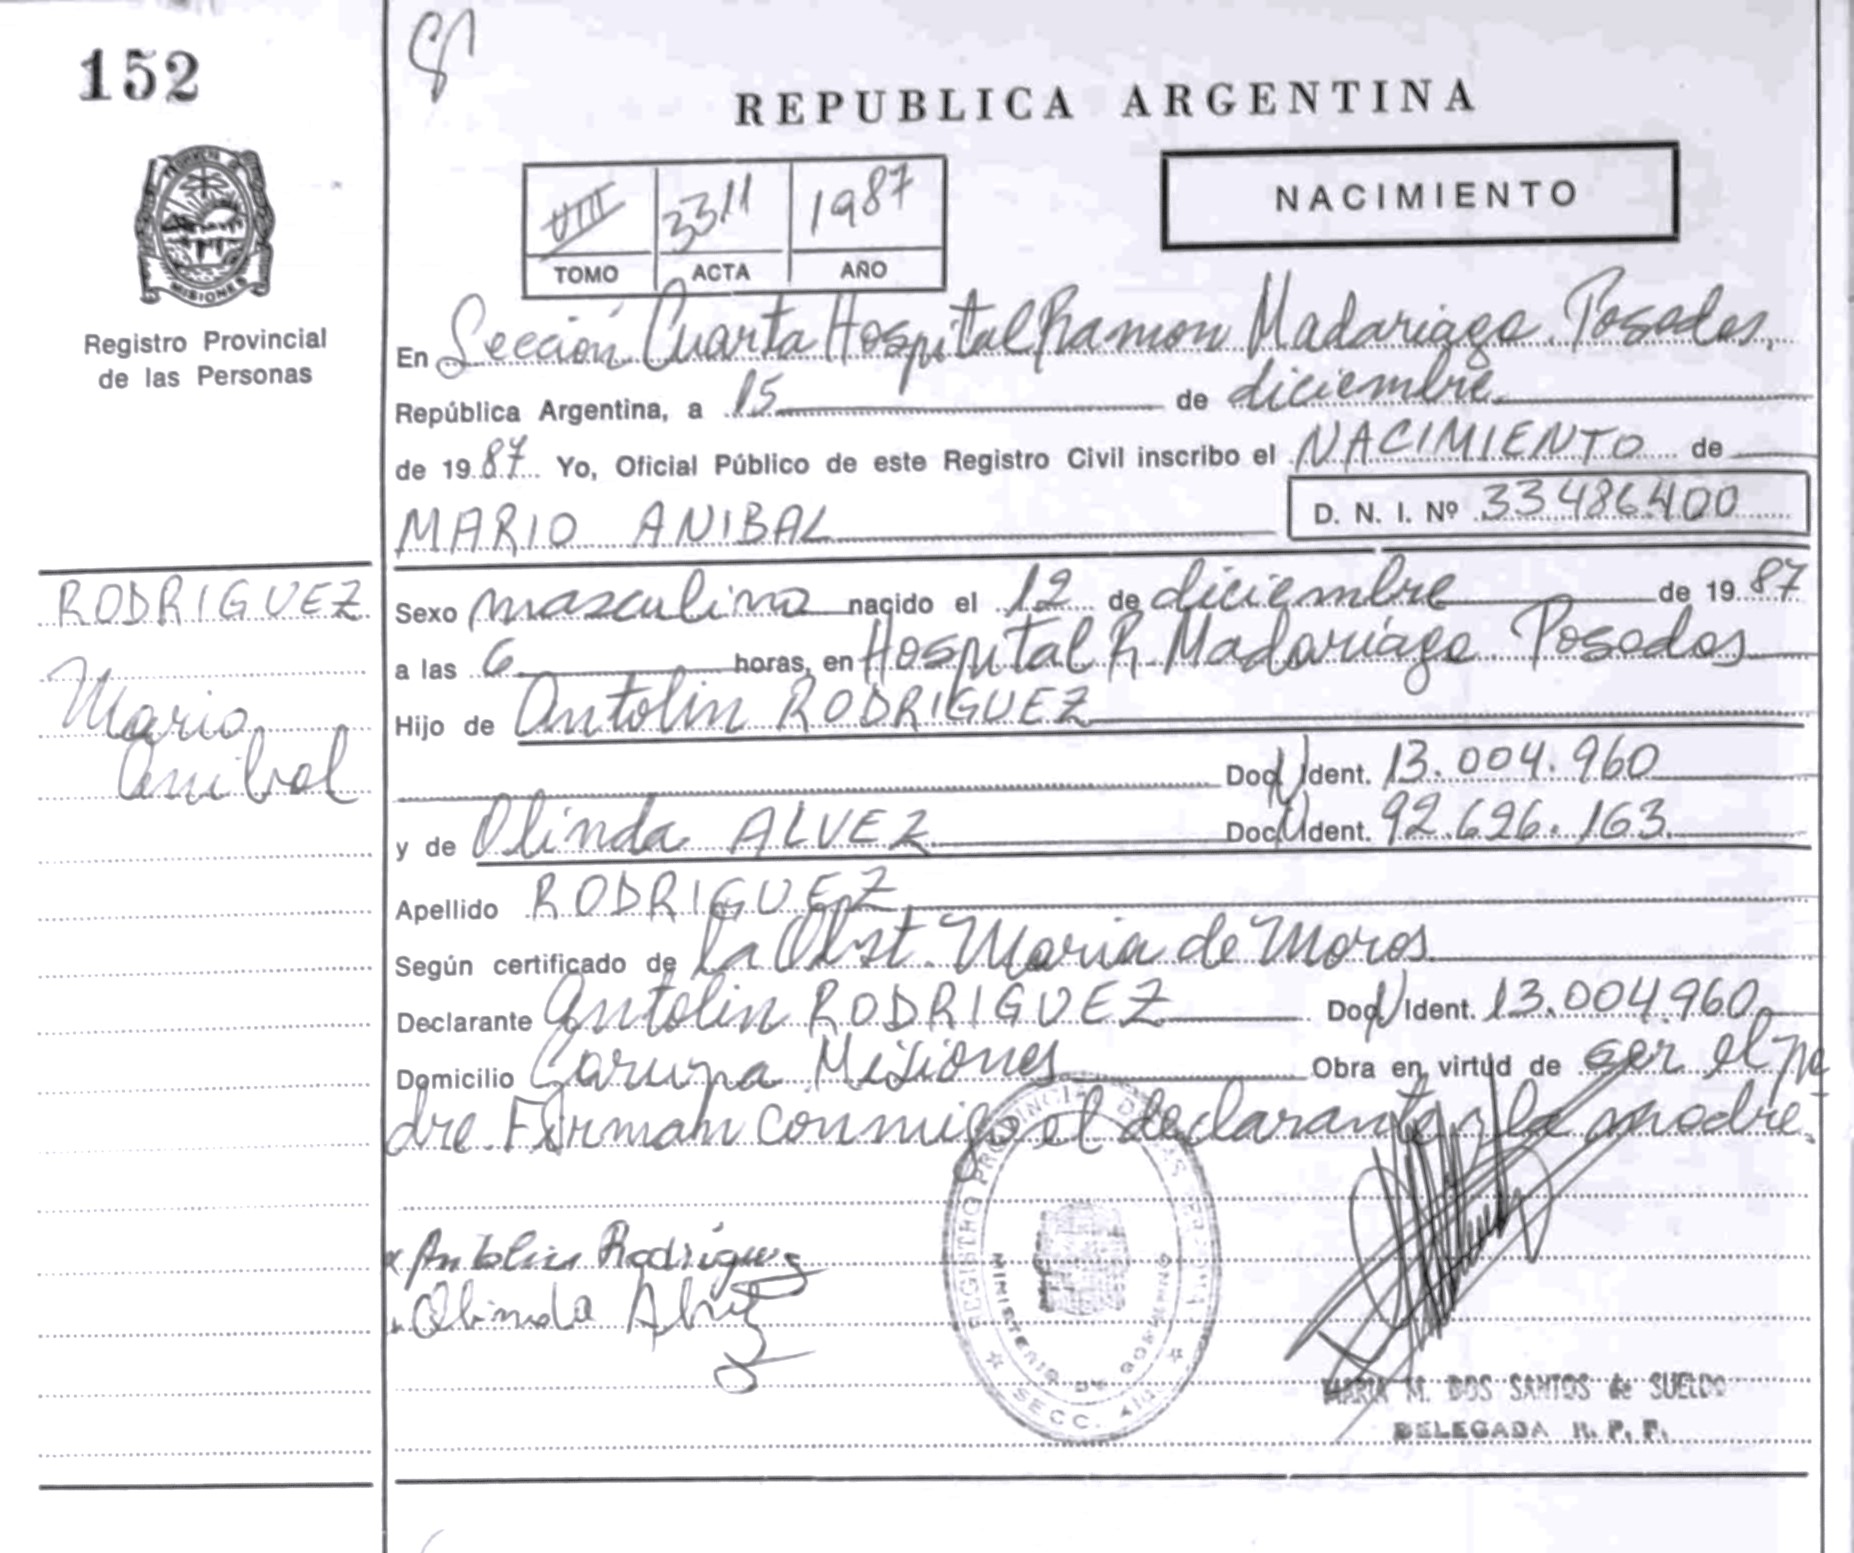 152
REPUBLICA ARGENTINA
VIII 3311 1987
TOMO ACTA AÑO
NACIMIENTO
MISIONES
Registro Provincial
de las Personas
En Sección Cuarta Hospital Ramon Madariaga. Posadas,
República Argentina, a 15 de diciembre
de 1987 Yo, Oficial Público de este Registro Civil inscribo el NACIMIENTO de
MARIO ANIBAL D. N. I. Nº 33486400
RODRIGUEZ
Mario
Anibal
Sexo masculino nacido el 12 de diciembre de 1987
a las 6 horas, en Hospital R. Madariaga Posadas
Hijo de Antolin RODRIGUEZ
Doc. Ident. 13.004.960
y de Olinda ALVEZ Doc. Ident. 92.626.163
Apellido RODRIGUEZ
Según certificado de la Obst. Maria de Moros
Declarante Antolin RODRIGUEZ Doc. Ident. 13.004.960
Domicilio Garupa Misiones Obra en virtud de ser el pa
dre. Firman conmigo el declarante y la madre.
Antolin Rodriguez
Olinda Alvez
REGISTRO PROVINCIAL DE LAS PERSONAS
MINISTERIO DE GOBIERNO
SECC. 4ta
MARIA M. DOS SANTOS de SUELDO
DELEGADA R. P. P.